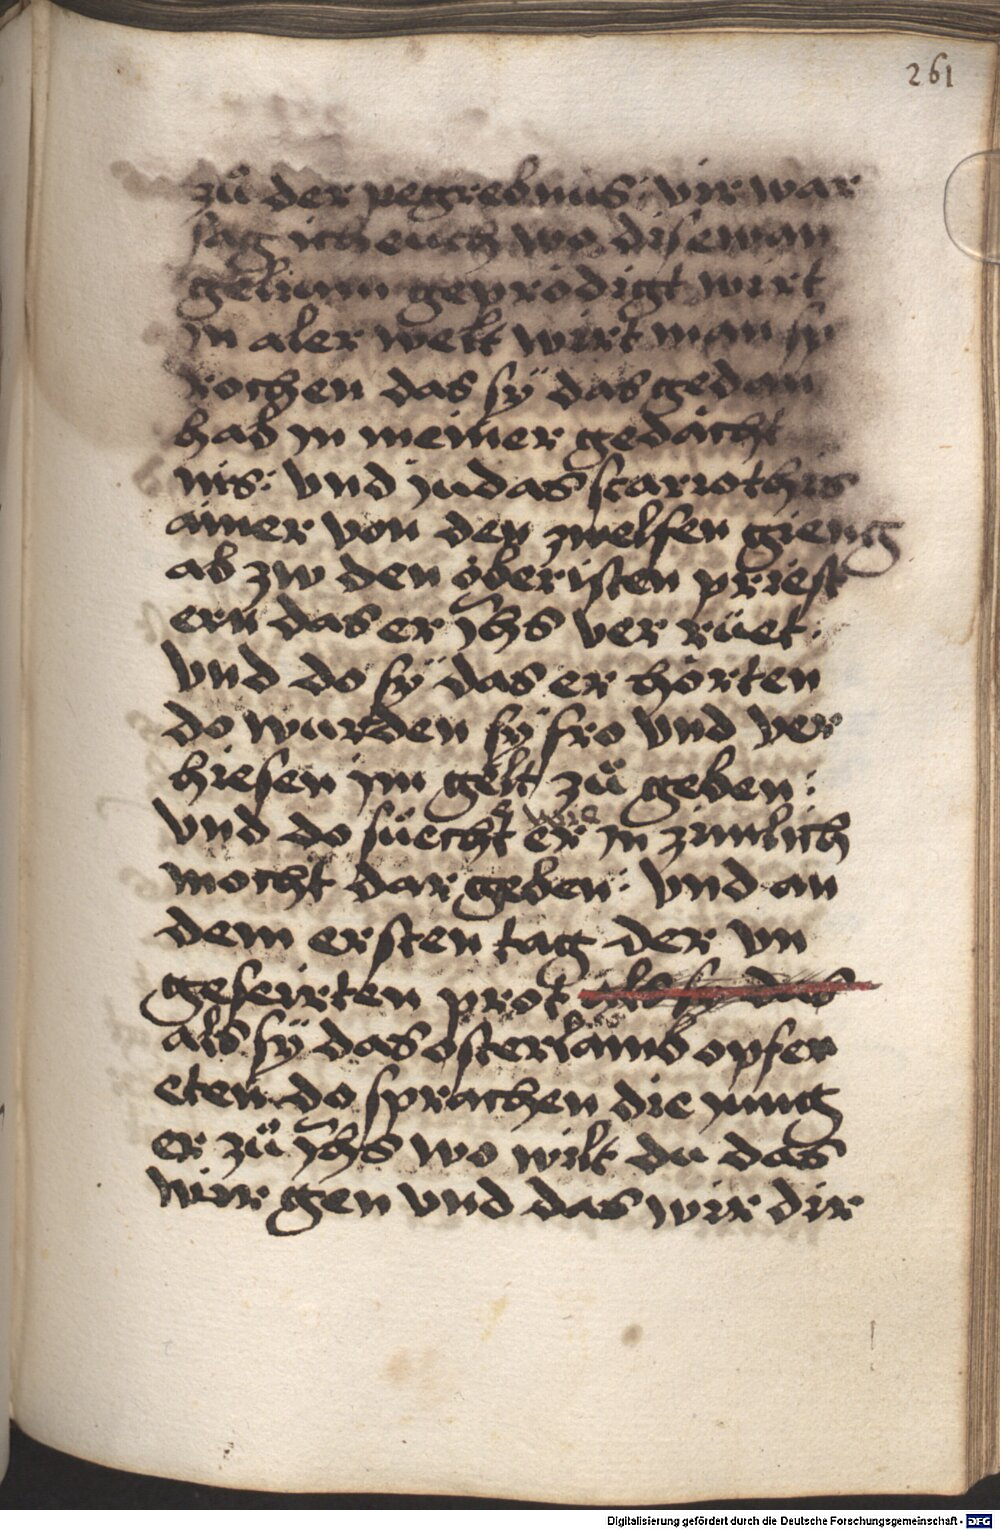 261
zů der pegrebnus: vir war
sag ich euch wo dis ewan
gelium geprödigt wirt
in aler welt wirt man sp
rochen das sÿ das gedan
hab in meiner gedächt
nis: vnd judas scariothis
ainer von den zwelfen gieng
ab zw den öberisten priest
ern das er jhs ver rüet:
vnd do sÿ das er hörten
do wurden sÿ fro vnd ver
hiesen im gelt zů geben:
wie
vnd do süecht er in zimlich
mocht dar geben: vnd an
dem ersten tag der vn
geseirten prot als sy das
als sÿ das osterlamb opfer
eten do sprachen die jung
er zů jhs wo wilt du das
wir gen vnd das wir dir
Digitalisierung gefördert durch die Deutsche Forschungsgemeinschaft - DFG